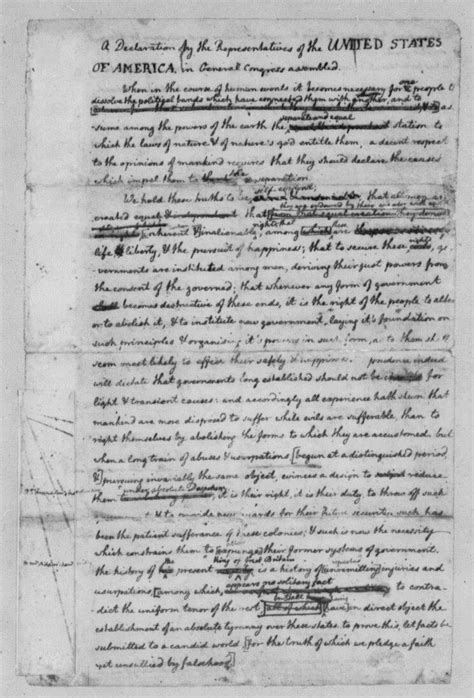 A Declaration by the Representatives of the UNITED STATES
OF AMERICA, in General Congress assembled.
When in the course of human events it becomes necessary for one people to
dissolve the political bands which have connected them with another, and to
as-
separate and equal
sume among the powers of the earth the station to
which the laws of nature & of nature's god entitle them, a decent respect
to the opinions of mankind requires that they should declare the causes
which impel them to the separation.
self evident,
We hold these truths to be that all men are
created equal that
they are endowed by their creator with
rights; that these
inherent & inalienable among which are
life & liberty, & the pursuit of happiness; that to secure these rights, go-
vernments are instituted among men, deriving their just powers from
the consent of the governed; that whenever any form of government
becomes destructive of these ends, it is the right of the people to alter
or to abolish it, & to institute new government, laying it's foundation on
such principles & organising it's powers in such form, as to them shall
seem most likely to effect their safety & happiness. prudence indeed
will dictate that governments long established should not be for
light & transient causes: and accordingly all experience hath shewn that
mankind are more disposed to suffer while evils are sufferable, than to
right themselves by abolishing the forms to which they are accustomed. but
when a long train of abuses & usurpations [begun at a distinguished period,
& pursuing invariably the same object, evinces a design to reduce
under absolute Despotism
them it is their right, it is their duty, to throw off such
& to provide new guards for their future security. such has
been the patient sufferance of these colonies; & such is now the necessity
which constrains them to [expunge] their former systems of government.
king of Great Britain
the history of the present is a history of [unremitting] injuries and
appears no solitary fact
usurpations, [among which, to contra-
in direct object the
dict the uniform tenor of the rest, all of which] have
establishment of an absolute tyranny over these states. to prove this, let facts be
submitted to a candid world [for the truth of which we pledge a faith
yet unsullied by falsehood]